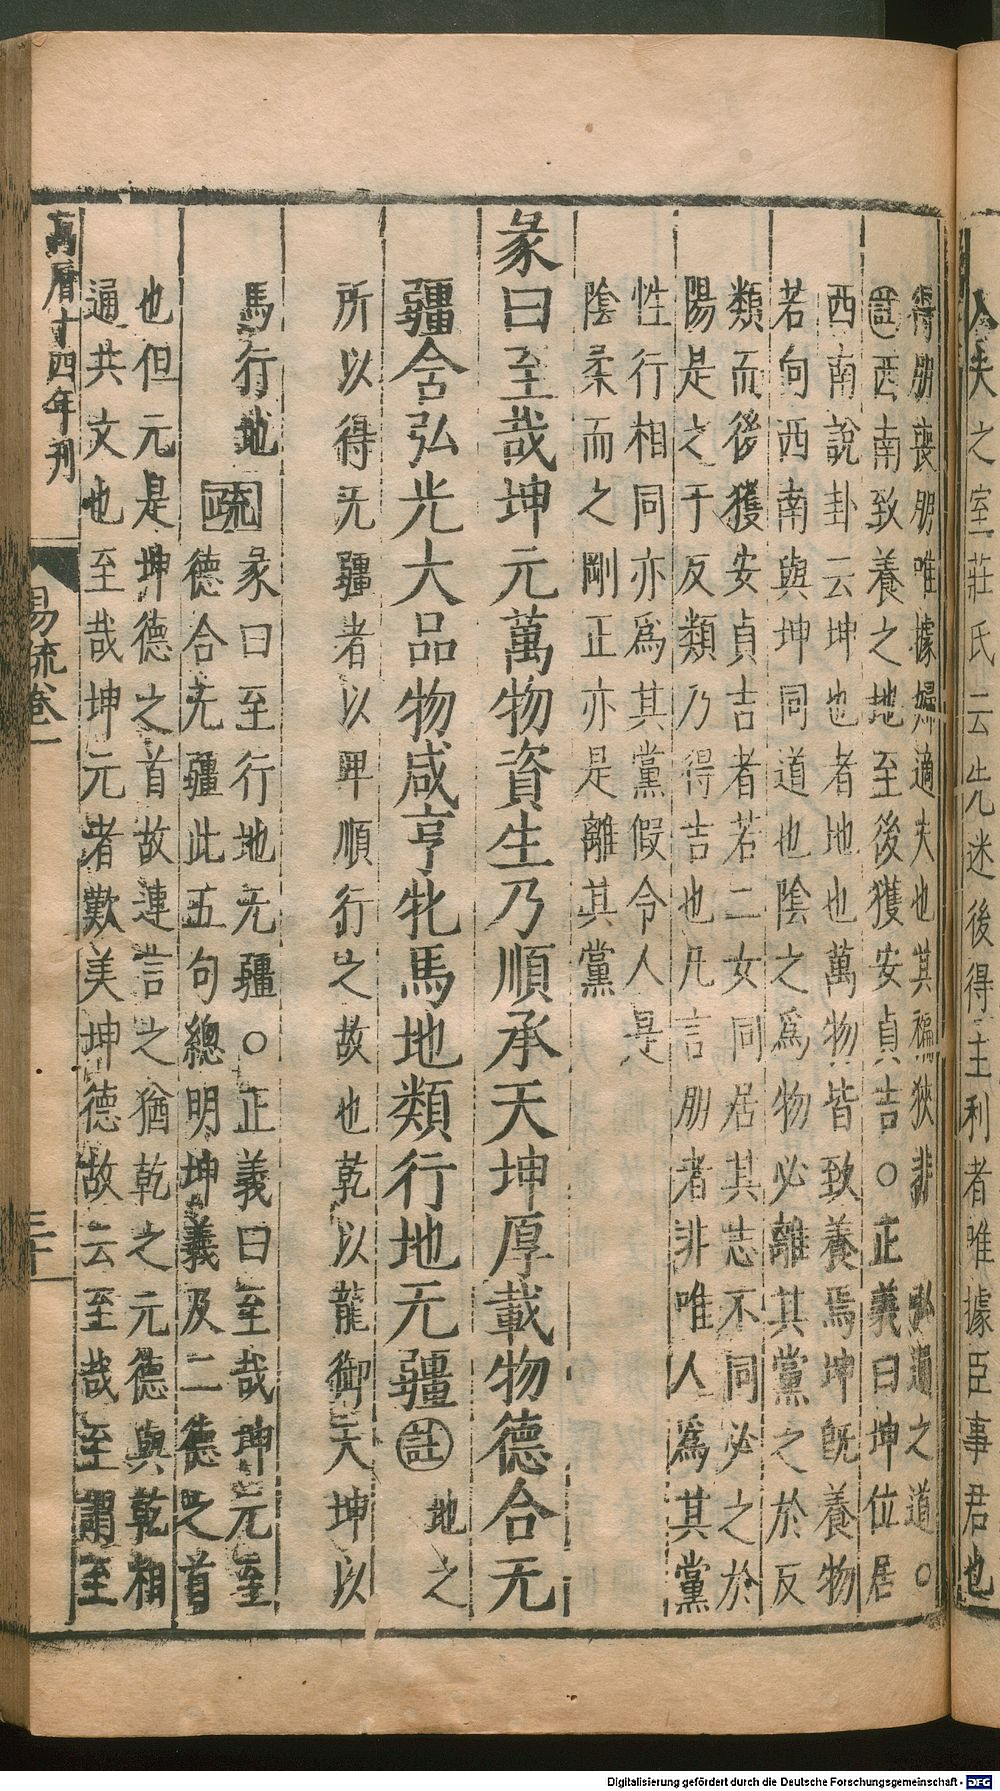 入夫之室莊氏云先迷後得主利者唯據臣事君也
得朋喪朋唯據婦適夫也其褊狹非弘通之道○
註西南致養之地至後獲安貞吉○正義曰坤位居
西南說卦云坤也者地也萬物皆致養焉坤旣養物
若向西南與坤同道也陰之爲物必離其黨之於反
類而後獲安貞吉者若二女同居其志不同必之於
陽是之于反類乃得吉也凡言朋者非唯人爲其黨
性行相同亦爲其黨假令人是
陰柔而之剛正亦是離其黨
彖曰至哉坤元萬物資生乃順承天坤厚載物德合无
疆含弘光大品物咸亨牝馬地類行地无疆註地之
所以得无疆者以卑順行之故也乾以龍御天坤以
馬行地疏彖曰至行地无疆○正義曰至哉坤元至
德合无疆此五句總明坤義及二德之首
也但元是坤德之首故連言之猶乾之元德與乾相
通共文也至哉坤元者歎美坤德故云至哉至謂至
萬曆十四年刊
易疏卷一
三十
Digitalisierung gefördert durch die Deutsche Forschungsgemeinschaft - DFG